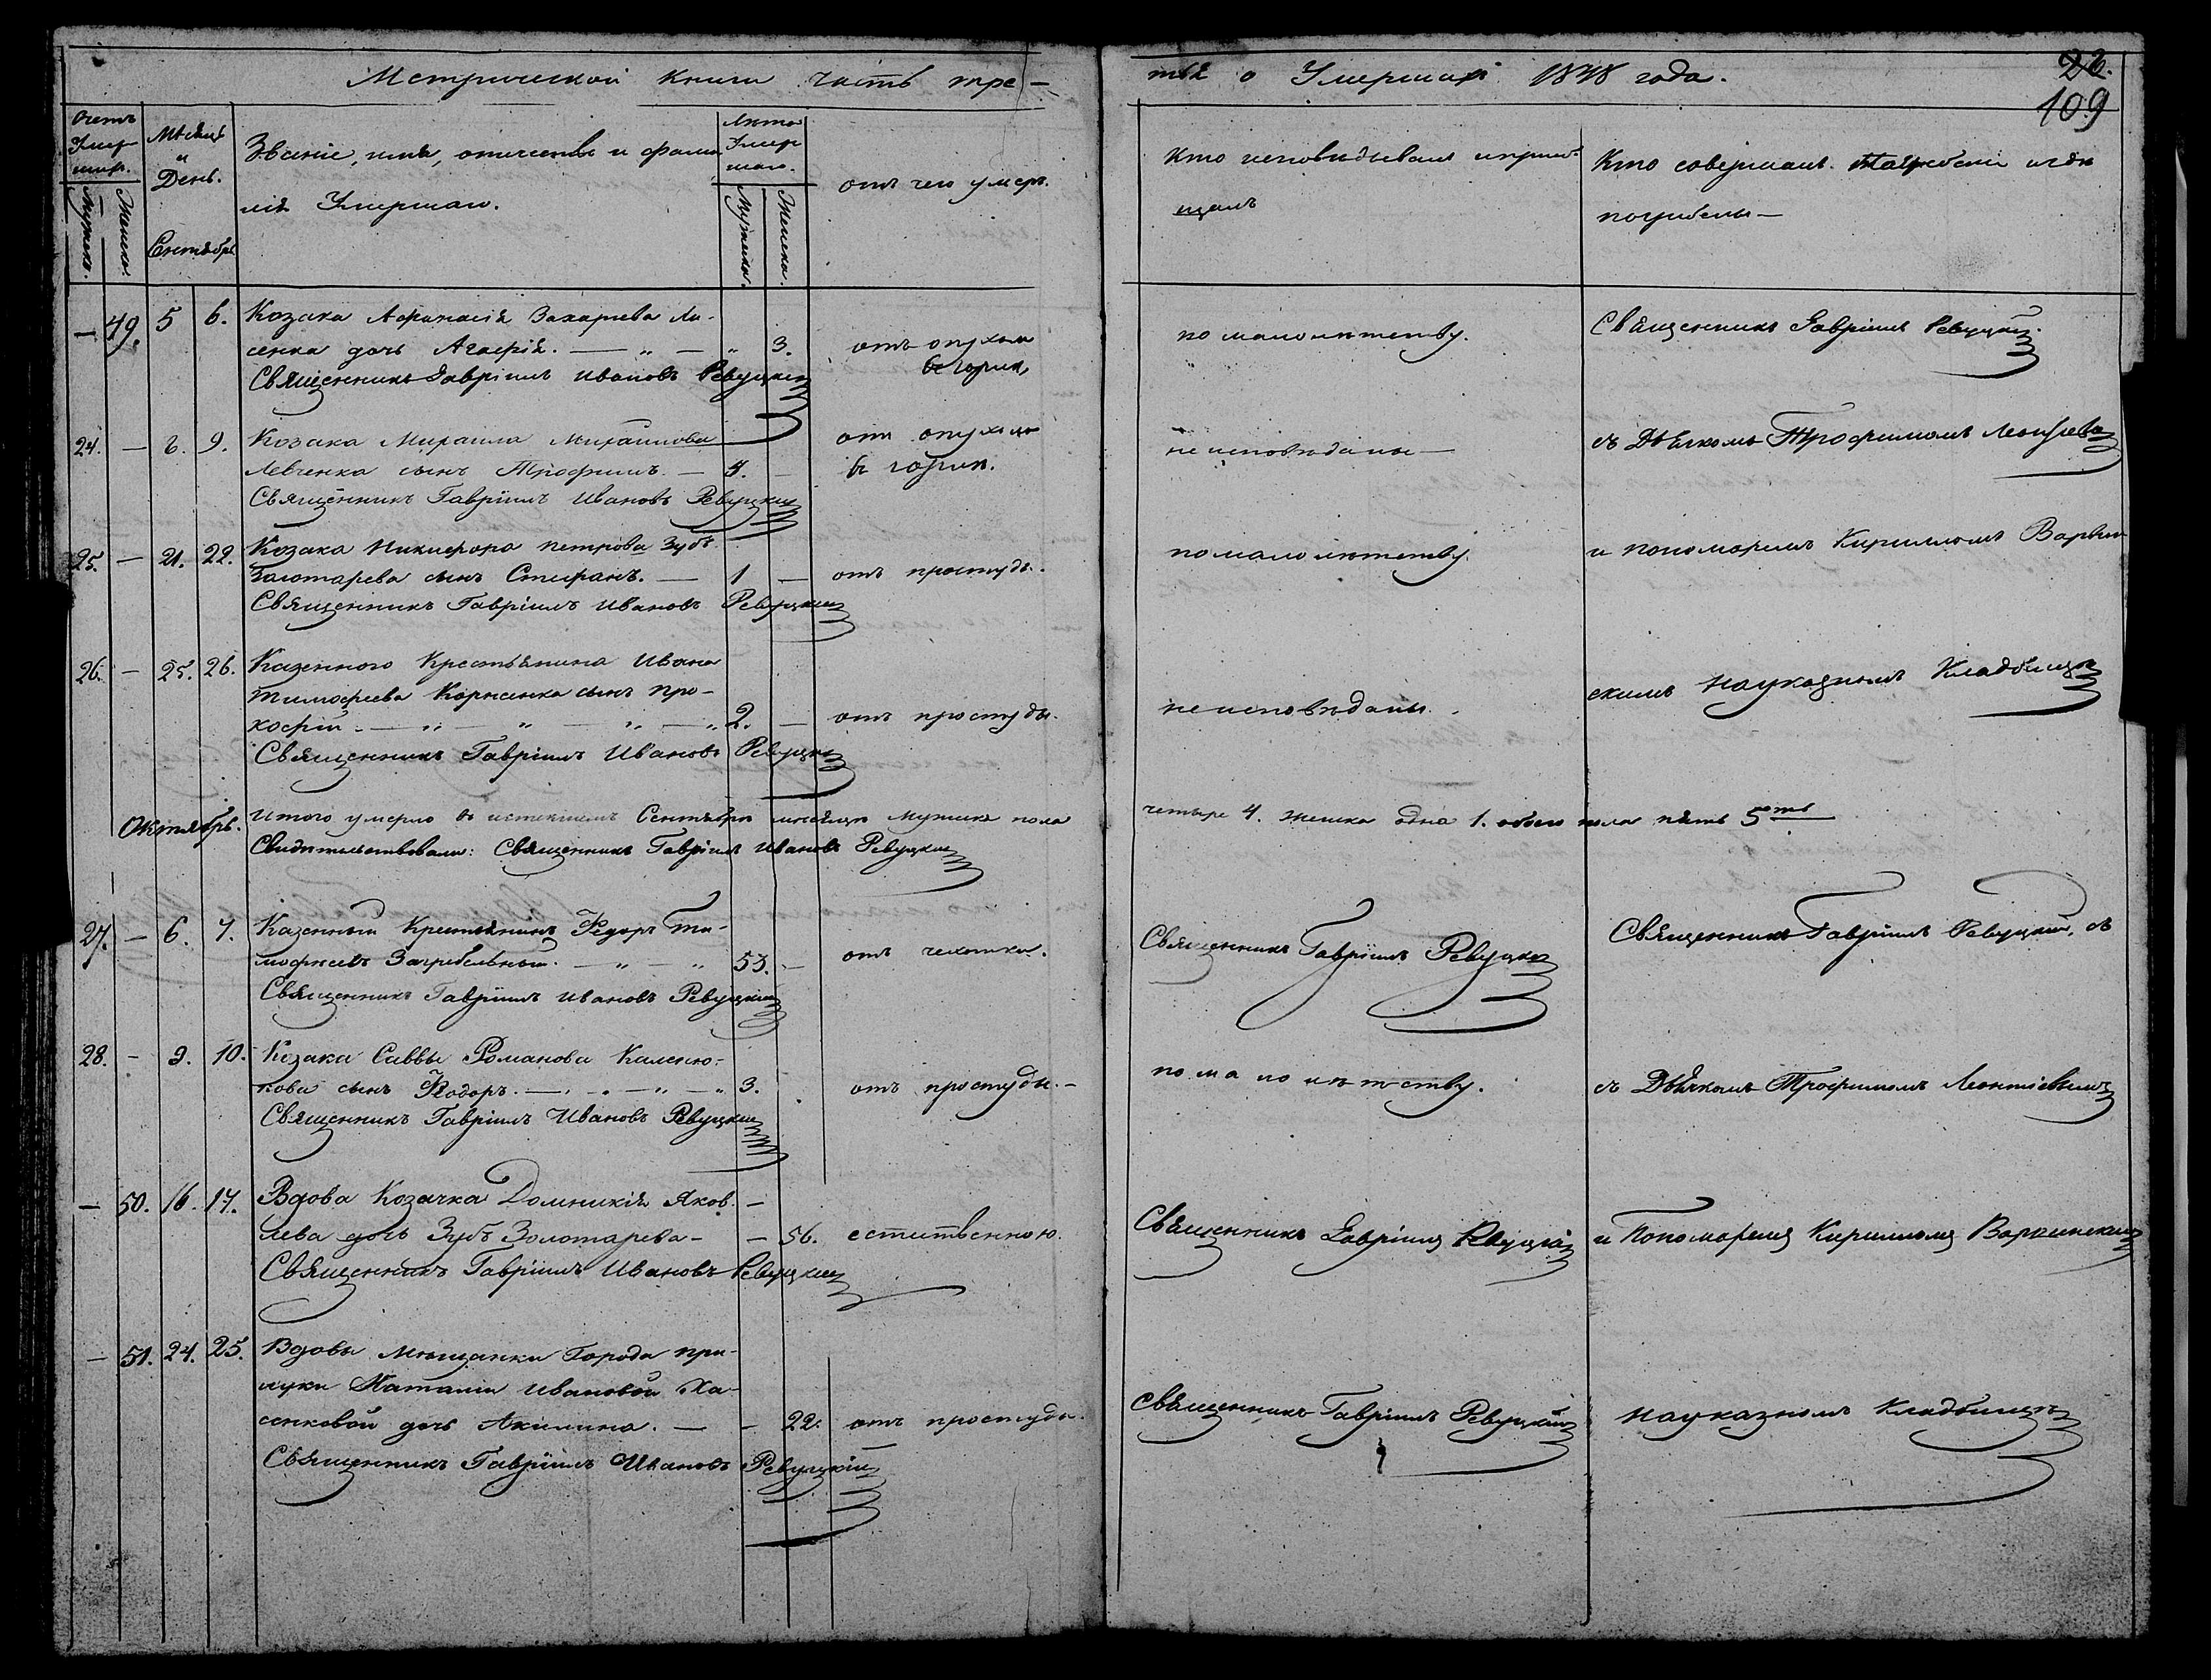 Метрической книги часть тре-
тья о Умершихъ 1848 года.
22.
109
Счетъ Умер-шихъ.
Мужеска.
Женска.
Мѣсяцъ и День.
Сентябрь
Званіе, имя, отчество и фами-
лія Умершаго.
Лѣта Умер-шаго.
Мужеска.
Женска.
отъ чего умеръ.
Кто исповѣдывалъ и приоб-
щалъ
Кто совершалъ погребеніе и гдѣ
погребены —
— 49. 5 6. Козака Афанасія Захарьева Ли-
сенка дочь Агафія. — „ — „ 3. отъ опухоли
въ горлѣ,
по малолѣтству.
Священникъ Гавріилъ Ревуцкій
Священникъ Гавріилъ Ивановъ Ревуцкій
24. — 6. 9. Козака Михаила Михайлова
Левченка сынъ Трофимъ. — 7. —
отъ опухоли
въ горлѣ.
не исповѣданы —
съ Дьячкомъ Трофимомъ Леонтіевы
Священникъ Гавріилъ Ивановъ Ревуцкій
25. — 21. 22. Козака Никифора Петрова Зубъ
Золотарева сынъ Стефанъ. — 1 — отъ простуды.
по малолѣтству.
и пономаремъ Кирилломъ Варвин-
Священникъ Гавріилъ Ивановъ Ревуцкій
26. — 25. 26. Казенного Крестьянина Ивана
Тимофеева Корнѣенка сынъ Про-
кофій. — „ — „ — „ — „ 2. — отъ простуды.
не исповѣданы.
скимъ на указномъ Кладбищѣ
Священникъ Гавріилъ Ивановъ Ревуцкій
Октябрь.
Итого умерло въ истекшемъ Сентябрѣ мѣсяцѣ мужска пола
четыре 4. женска одна 1. обоего пола пять 5ть
Свидѣтельствовали: Священникъ Гавріилъ Ивановъ Ревуцкій
27. — 6. 7. Казенный Крестьянинъ Ѳедоръ Ти-
мофѣевъ Загребельный. — „ — „ 53. — отъ чахотки.
Священникъ Гавріилъ Ревуцкій
Священникъ Гавріилъ Ревуцкій, съ
Священникъ Гавріилъ Ивановъ Ревуцкій
28. — 9. 10. Козака Саввы Романова Каленю-
кова сынъ Ѳеодоръ. — „ — „ — „ 3. отъ простуды. —
по малолѣтству.
съ Дьячкомъ Трофимомъ Леонтіевымъ
Священникъ Гавріилъ Ивановъ Ревуцкій
— 50. 16. 17. Вдова Козачка Домникія Яков- —
лева дочь Зубъ Золотарева — — 56. естественною.
Священникъ Гавріилъ Ревуцкій
и Пономаремъ Кирилломъ Варвинскимъ
Священникъ Гавріилъ Ивановъ Ревуцкій
— 51. 24. 25. Вдовы Мѣщанки Города При-
луки Наталіи Ивановой Ха-
сенковой дочь Акилина. — — 22. отъ простуды.
Священникъ Гавріилъ Ревуцкій
на указномъ Кладбищѣ
Священникъ Гавріилъ Ивановъ Ревуцкій